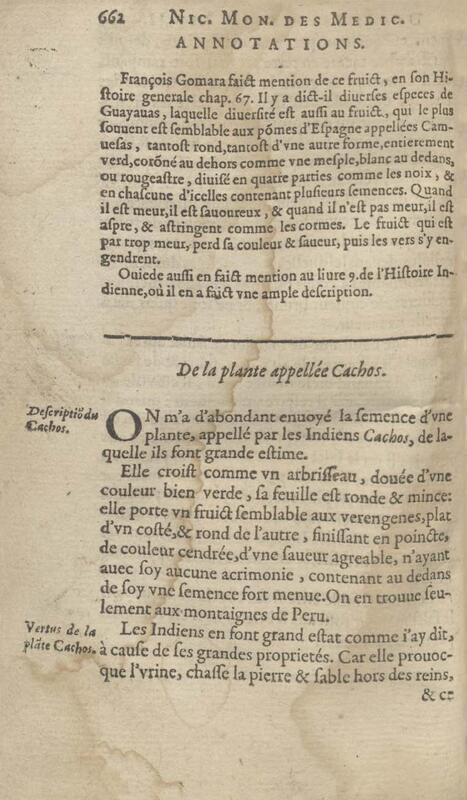 662 NIC. MON. DES MEDIC.
ANNOTATIONS.
François Gomara faict mention de ce fruict, en son Hi-
stoire generale chap. 67. Il y a dict-il diuerses especes de
Guayauas, laquelle diuersité est aussi au fruict, qui le plus
souuent est semblable aux põmes d'Espagne appellées Cam-
uesas, tantost rond, tantost d'vne autre forme, entierement
verd, corõné au dehors comme vne mesple, blanc au dedans,
ou rougeastre, diuisé en quatre parties comme les noix, &
en chascune d'icelles contenant plusieurs semences. Quand
il est meur, il est sauoureux, & quand il n'est pas meur, il est
aspre, & astringent comme les cormes. Le fruict qui est
par trop meur, perd sa couleur & saueur, puis les vers s'y en-
gendrent.
Ouiede aussi en faict mention au liure 9. de l'Histoire In-
dienne, où il en a faict vne ample description.
De la plante appellée Cachos.
Descriptiõ du
Cachos.
ON m'a d'abondant enuoyé la semence d'vne
plante, appellé par les Indiens Cachos, de la-
quelle ils font grande estime.
Elle croist comme vn arbrisseau, douée d'vne
couleur bien verde, sa feuille est ronde & mince:
elle porte vn fruict semblable aux verengenes, plat
d'vn costé, & rond de l'autre, finissant en poincte,
de couleur cendrée, d'vne saueur agreable, n'ayant
auec soy aucune acrimonie, contenant au dedans
de soy vne semence fort menue. On en trouue seu-
lement aux montaignes de Peru.
Vertus de la
plãte Cachos.
Les Indiens en font grand estat comme i'ay dit,
à cause de ses grandes proprietés. Car elle prouoc-
que l'vrine, chasse la pierre & sable hors des reins,
& ce